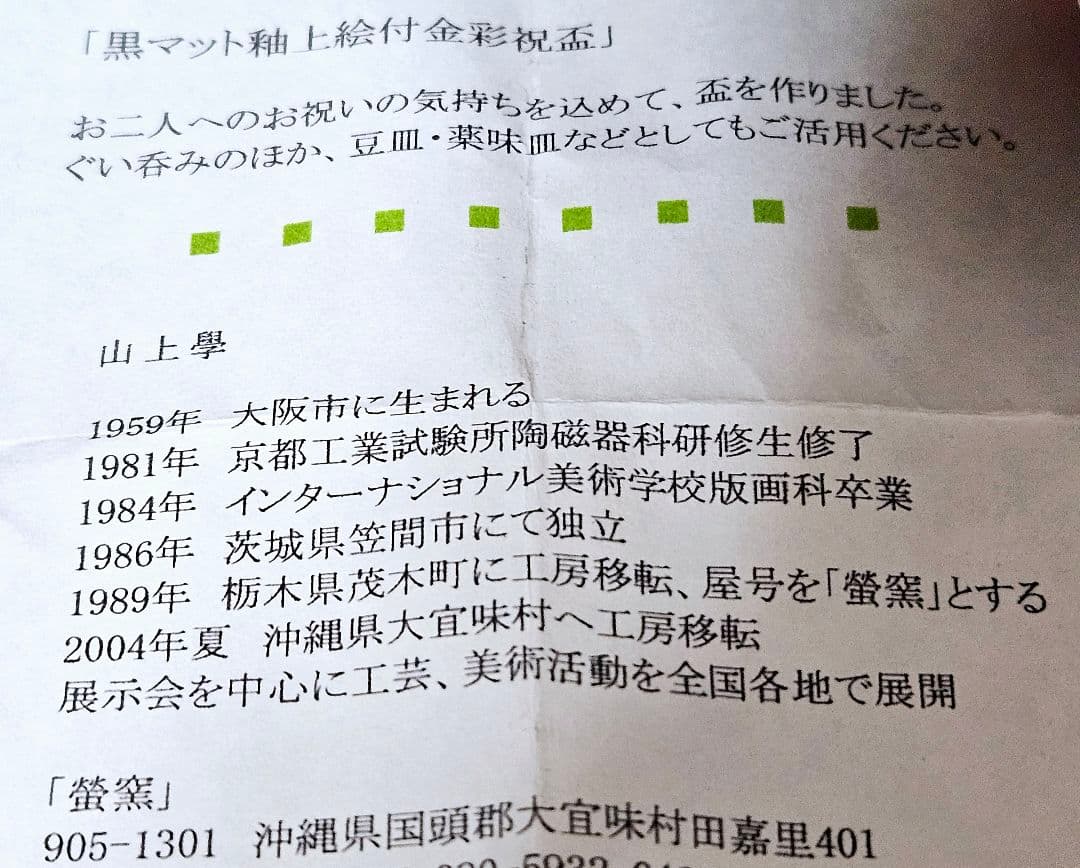 「黒マット釉上絵付金彩祝盃」
お二人へのお祝いの気持ちを込めて、盃を作りました。
ぐい呑みのほか、豆皿・薬味皿などとしてもご活用ください。
山上學
1959年 大阪市に生まれる
1981年 京都工業試験所陶磁器科研修生修了
1984年 インターナショナル美術学校版画科卒業
1986年 茨城県笠間市にて独立
1989年 栃木県茂木町に工房移転、屋号を「螢窯」とする
2004年夏 沖縄県大宜味村へ工房移転
展示会を中心に工芸、美術活動を全国各地で展開
「螢窯」
905-1301 沖縄県国頭郡大宜味村田嘉里401